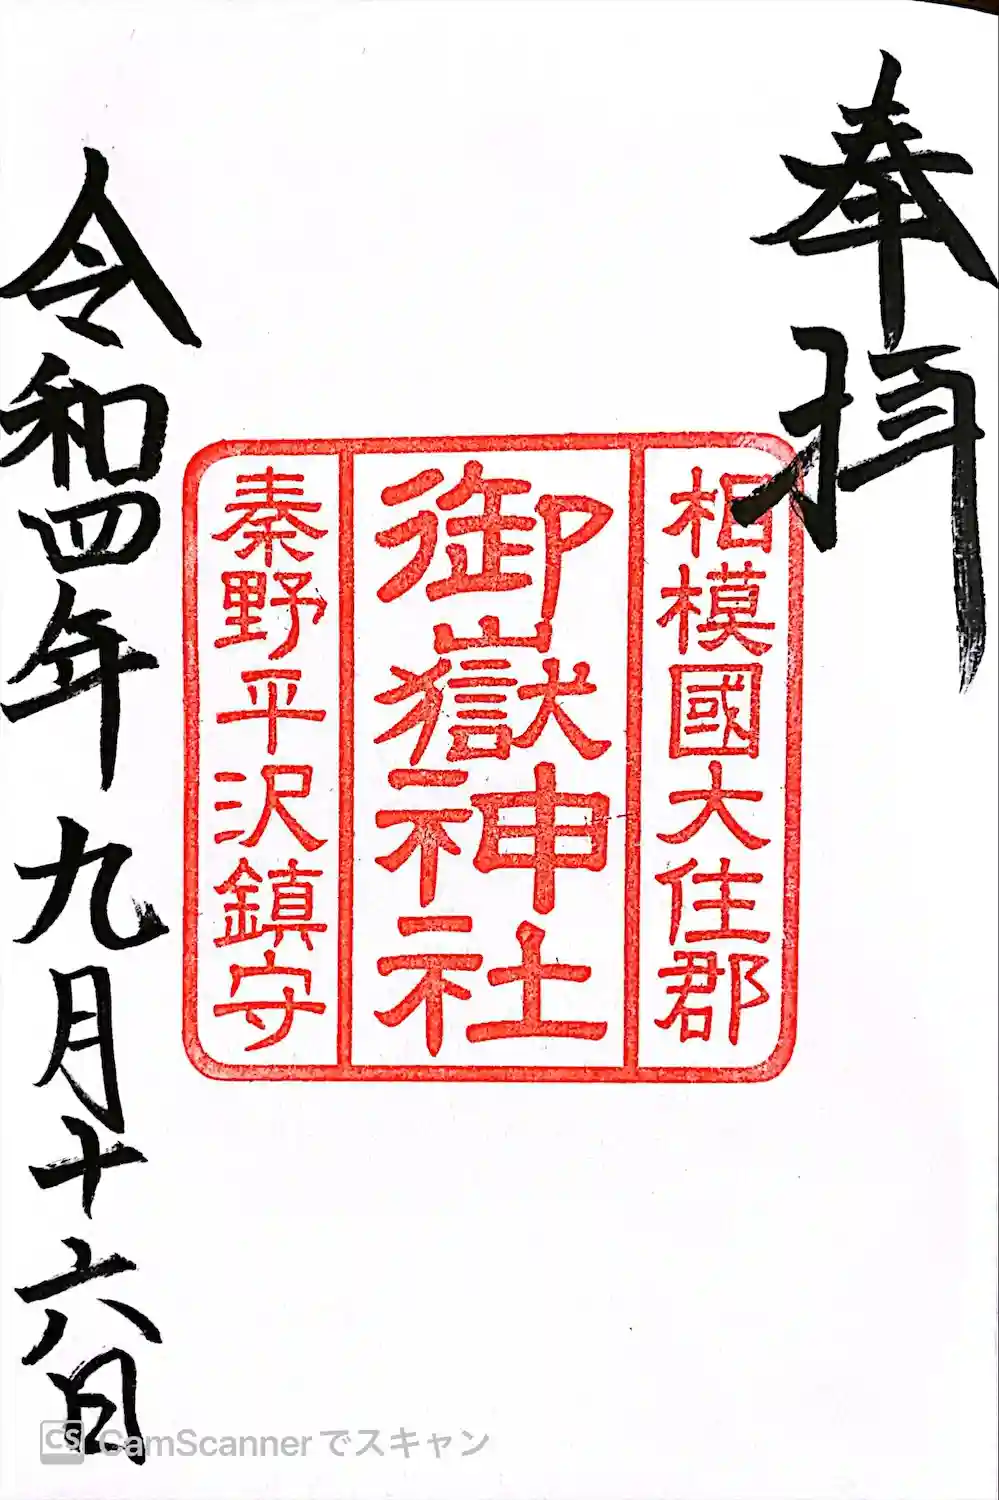 奉拝
相模國大住郡
御嶽神社
秦野平沢鎮守
令和四年九月十六日
CS CamScannerでスキャン